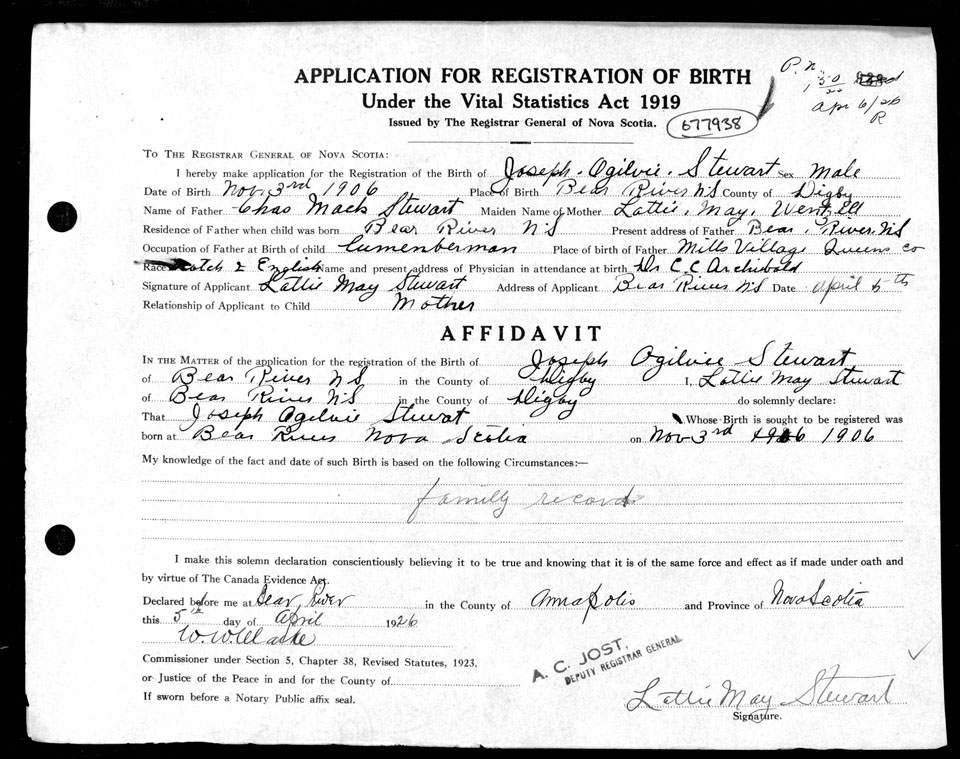 APPLICATION FOR REGISTRATION OF BIRTH
Under the Vital Statistics Act 1919
Issued by The Registrar General of Nova Scotia.
677938
P. n.
1.50
Apr 6/26
R
TO THE REGISTRAR GENERAL OF NOVA SCOTIA:
I hereby make application for the Registration of the Birth of Joseph Ogilvie Stewart Sex Male
Date of Birth Nov 3rd 1906 Place of Birth Bear River NS County of Digby
Name of Father Chas Mack Stewart Maiden Name of Mother Lottie May Wentzell
Residence of Father when child was born Bear River NS Present address of Father Bear River NS
Occupation of Father at Birth of child Lumenberman Place of birth of Father Mills Village Queens Co
Race Scotch & English Name and present address of Physician in attendance at birth Dr C.C Archibald
Signature of Applicant Lottie May Stewart Address of Applicant Bear River NS Date April 5th
Relationship of Applicant to Child Mother
AFFIDAVIT
IN THE MATTER of the application for the registration of the Birth of Joseph Ogilvie Stewart
of Bear River NS in the County of Digby I, Lottie May Stewart
of Bear River NS in the County of Digby do solemnly declare:
That Joseph Ogilvie Stewat Whose Birth is sought to be registered was
born at Bear River Nova Scotia on Nov 3rd 1906
My knowledge of the fact and date of such Birth is based on the following Circumstances:—
family records
I make this solemn declaration conscientiously believing it to be true and knowing that it is of the same force and effect as if made under oath and
by virtue of The Canada Evidence Act.
Declared before me at Bear River in the County of Annapolis and Province of Nova Scotia
this 5th day of April 1926
W. W. Clarke
Commissioner under Section 5, Chapter 38, Revised Statutes, 1923.
or Justice of the Peace in and for the County of
If sworn before a Notary Public affix seal.
A. C. JOST,
DEPUTY REGISTRAR GENERAL
Lottie May Stewart
Signature.